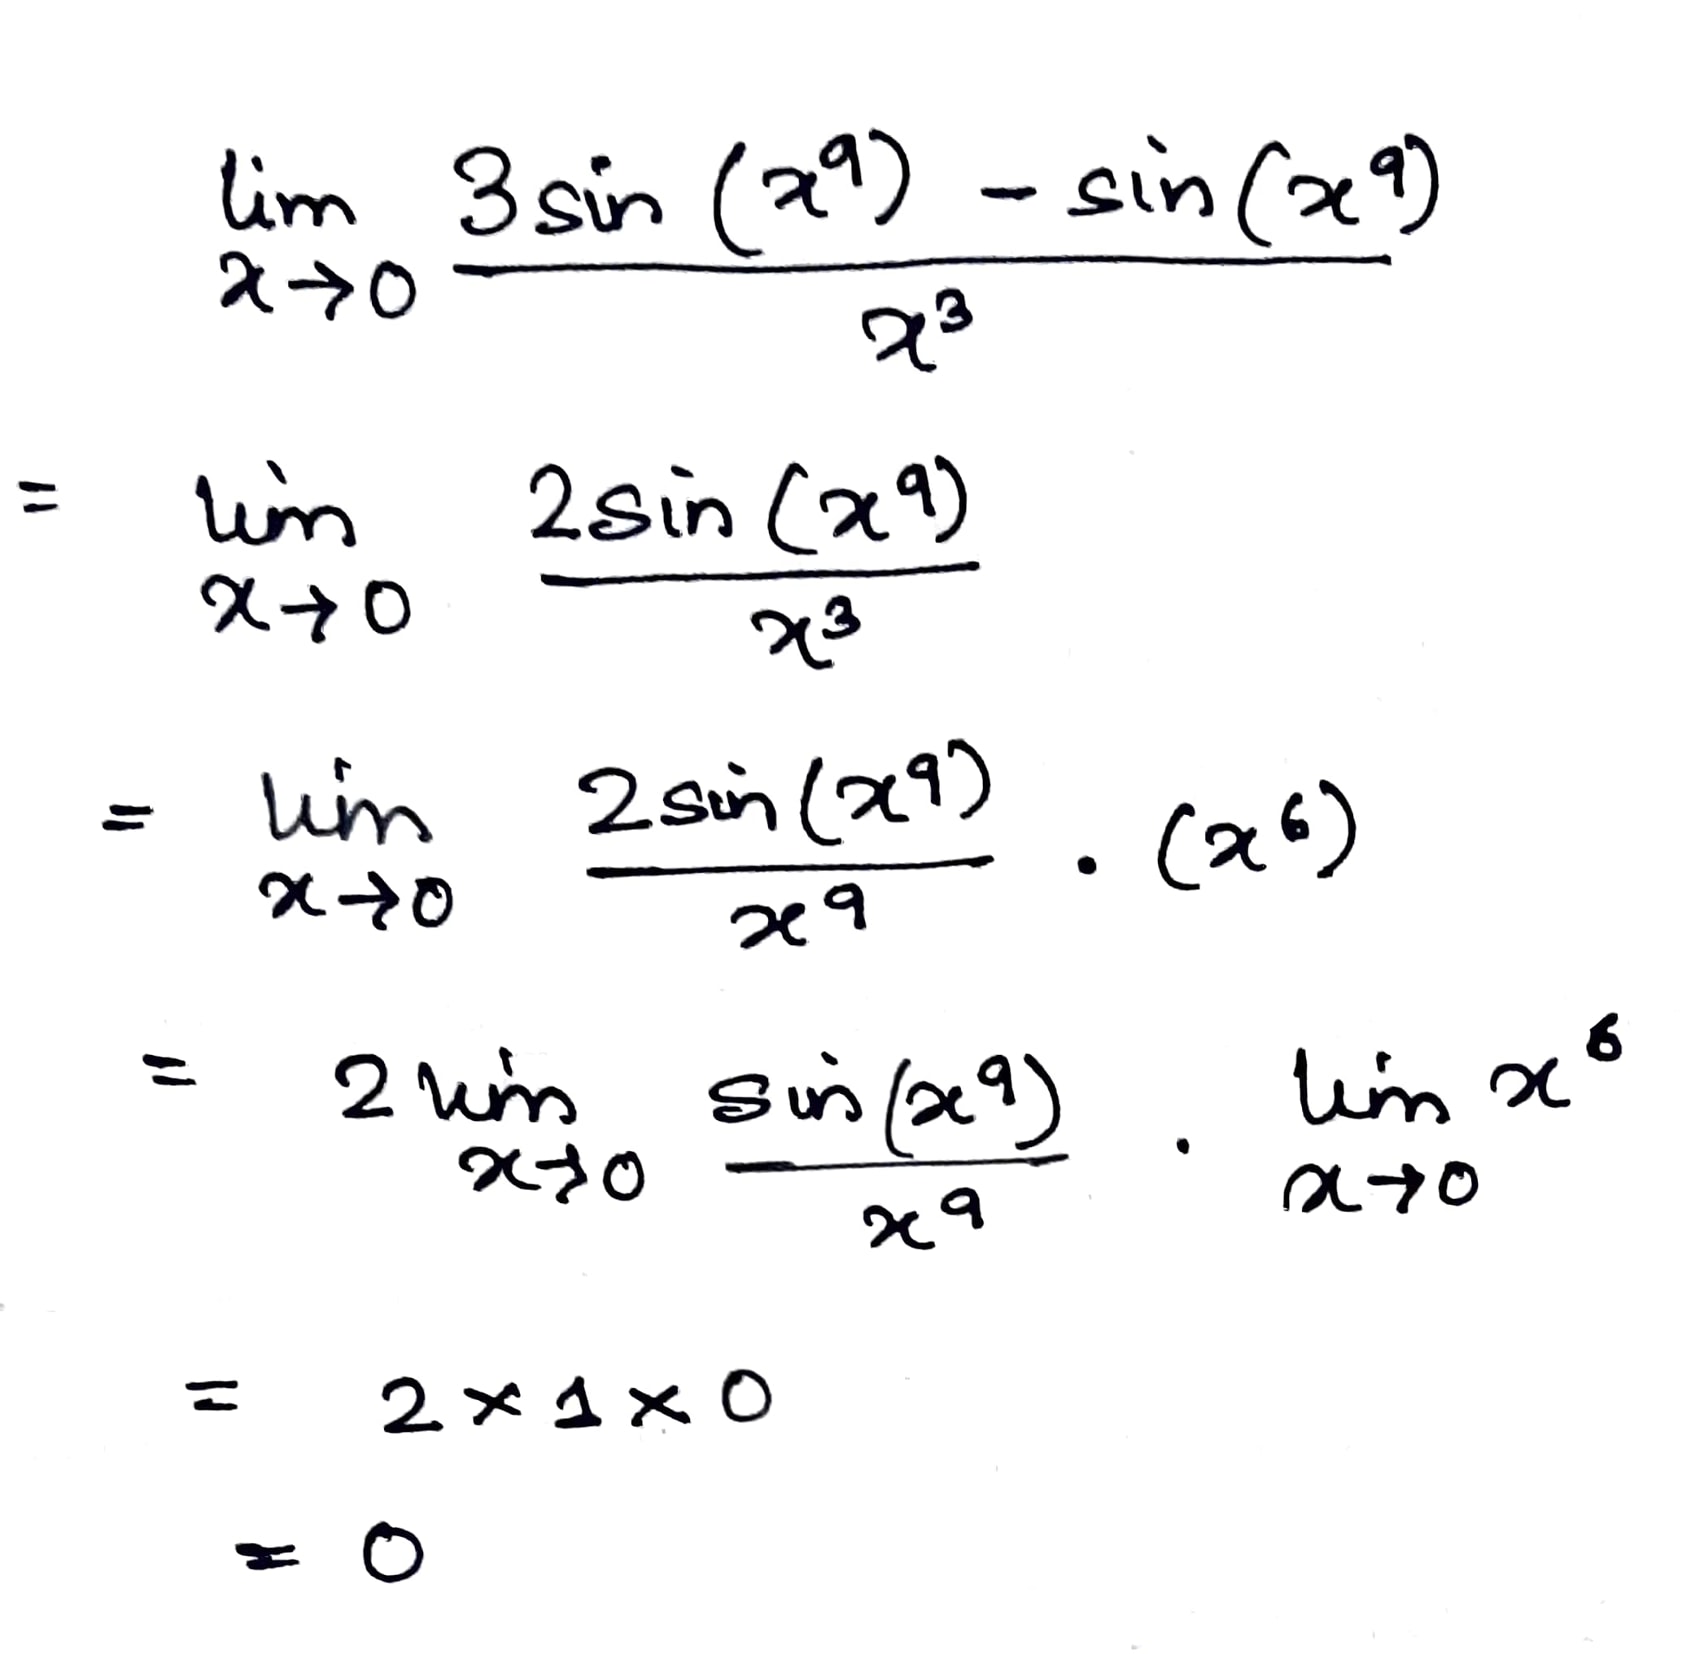 lim x→0 (3 sin (x⁹) - sin (x⁹)) / x³
= lim x→0 2 sin (x⁹) / x³
= lim x→0 2 sin (x⁹) / x⁹ . (x⁶)
= 2 lim x→0 sin (x⁹) / x⁹ . lim x→0 x⁶
= 2 × 1 × 0
= 0